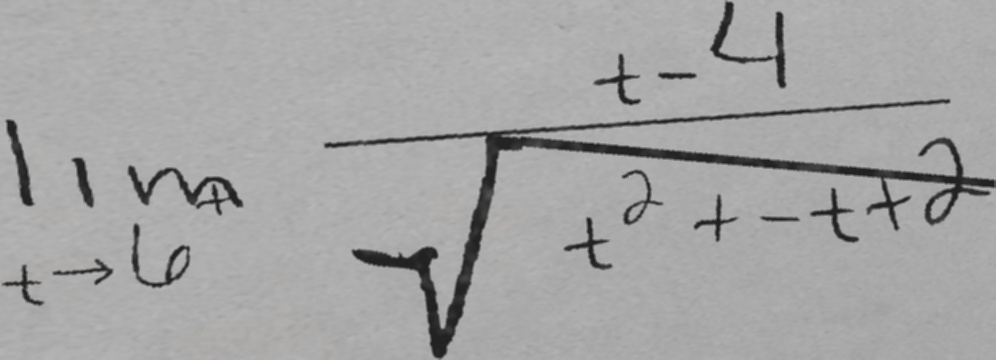 lim_{t \to 6^+} \frac{t-4}{\sqrt{t^2 + -t + 2}}